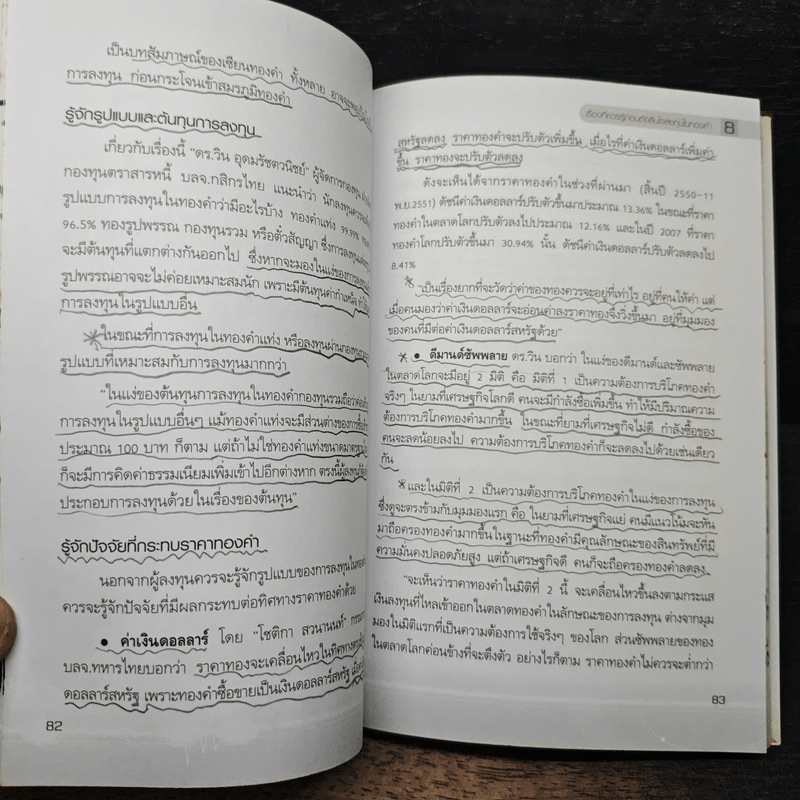 เป็นบทสัมภาษณ์ของเซียนทองคำ ทั้งหลาย
การลงทุน ก่อนกระโจนเข้าสมรภูมิทองคำ
รู้จักรูปแบบและต้นทุนการลงทุน
เกี่ยวกับเรื่องนี้ "ดร.วิน อุดมรัชตวนิชย์" ผู้จัดการกองทุน
กองทุนตราสารหนี้ บลจ.กสิกรไทย แนะนำว่า นักลงทุนควร
รูปแบบการลงทุนในทองคำว่ามีอะไรบ้าง ทองคำแท่ง 99.99%
96.5% ทองรูปพรรณ กองทุนรวม หรือตั๋วสัญญา ซึ่งการลงทุน
จะมีต้นทุนที่แตกต่างกันออกไป ซึ่งหากจะมองในแง่ของการลงทุน
รูปพรรณอาจจะไม่ค่อยเหมาะสมนัก เพราะมีต้นทุนค่ากำเหน็จ
การลงทุนในรูปแบบอื่น
ในขณะที่การลงทุนในทองคำแท่ง หรือลงทุนผ่านกองทุน
รูปแบบที่เหมาะสมกับการลงทุนมากกว่า
"ในแง่ของต้นทุนการลงทุนในทองคำกองทุนรวมถือว่า
การลงทุนในรูปแบบอื่นๆ แม้ทองคำแท่งจะมีส่วนต่างของการ
ประมาณ 100 บาท ก็ตาม แต่ถ้าไม่ใช่ทองคำแท่งขนาดมาตรฐาน
ก็จะมีการคิดค่าธรรมเนียมเพิ่มเข้าไปอีกต่างหาก ตรงนี้ผู้ลงทุน
ประกอบการลงทุนด้วยในเรื่องของต้นทุน"
รู้จักปัจจัยที่กระทบราคาทองคำ
นอกจากผู้ลงทุนควรจะรู้จักรูปแบบของการลงทุนใน
ควรจะรู้จักปัจจัยที่มีผลกระทบต่อทิศทางราคาทองคำด้วย
• ค่าเงินดอลลาร์ โดย "โชติกา สวนานนท์"
บลจ.ทหารไทยบอกว่า ราคาทองจะเคลื่อนไหวในทิศทาง
ดอลลาร์สหรัฐ เพราะทองคำซื้อขายเป็นเงินดอลลาร์สหรัฐ
82
เรื่องที่ควรรู้ก่อนตัดสินใจลงทุนในทองคำ 8
สหรัฐลดลง ราคาทองคำจะปรับตัวเพิ่มขึ้น เมื่อไรที่ค่าเงินดอลลาร์เพิ่มค่า
ขึ้น ราคาทองจะปรับตัวลดลง
ดังจะเห็นได้จากราคาทองคำในช่วงที่ผ่านมา (สิ้นปี 2550-11
พ.ย.2551) ดัชนีค่าเงินดอลลาร์ปรับตัวขึ้นมาประมาณ 13.36% ในขณะที่ราคา
ทองคำในตลาดโลกปรับตัวลงไปประมาณ 12.16% และในปี 2007 ที่ราคา
ทองคำโลกปรับตัวขึ้นมา 30.94% นั้น ดัชนีค่าเงินดอลลาร์ปรับตัวลดลงไป
8.41%
"เป็นเรื่องยากที่จะวัดว่าค่าของทองควรจะอยู่ที่เท่าไร อยู่ที่คนให้ค่า แต่
เมื่อคนมองว่าค่าเงินดอลลาร์จะอ่อนค่าลงราคาทองจึงวิ่งขึ้นมา อยู่ที่มุมมอง
ของคนที่มีต่อค่าเงินดอลลาร์สหรัฐด้วย"
• ดีมานด์ซัพพลาย ดร.วิน บอกว่า ในแง่ของดีมานด์และซัพพลาย
ในตลาดโลกจะมีอยู่ 2 มิติ คือ มิติที่ 1 เป็นความต้องการบริโภคทองคำ
จริงๆ ในยามที่เศรษฐกิจโลกดี คนจะมีกำลังซื้อเพิ่มขึ้น ทำให้มีปริมาณความ
ต้องการบริโภคทองคำมากขึ้น ในขณะที่ยามที่เศรษฐกิจไม่ดี กำลังซื้อของ
คนจะลดน้อยลงไป ความต้องการบริโภคทองคำก็จะลดลงไปด้วยเช่นเดียว
กัน
และในมิติที่ 2 เป็นความต้องการบริโภคทองคำในแง่ของการลงทุน
ซึ่งดูจะตรงข้ามกับมุมมองแรก คือ ในยามที่เศรษฐกิจแย่ คนมีแนวโน้มจะหัน
มาถือครองทองคำมากขึ้นในฐานะที่ทองคำมีคุณลักษณะของสินทรัพย์ที่มี
ความมั่นคงปลอดภัยสูง แต่ถ้าเศรษฐกิจดี คนก็จะถือครองทองคำลดลง
"จะเห็นว่าราคาทองคำในมิติที่ 2 นี้ จะเคลื่อนไหวขึ้นลงตามกระแส
เงินลงทุนที่ไหลเข้าออกในตลาดทองคำในลักษณะของการลงทุน ต่างจากมุม
มองในมิติแรกที่เป็นความต้องการใช้จริงๆ ของโลก ส่วนซัพพลายของทอง
ในตลาดโลกค่อนข้างที่จะตึงตัว อย่างไรก็ตาม ราคาทองคำไม่ควรจะต่ำกว่า
83